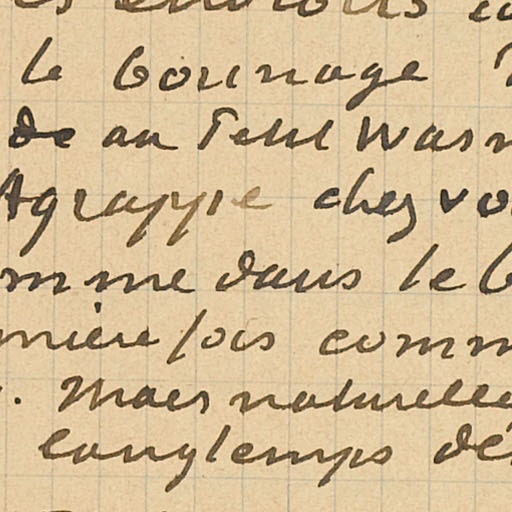 es environs
le borinage
de au Petit Wasm
Agrappe chez vo
mme dans le b
mière fois comm
. Mais naturelle
longtemps de